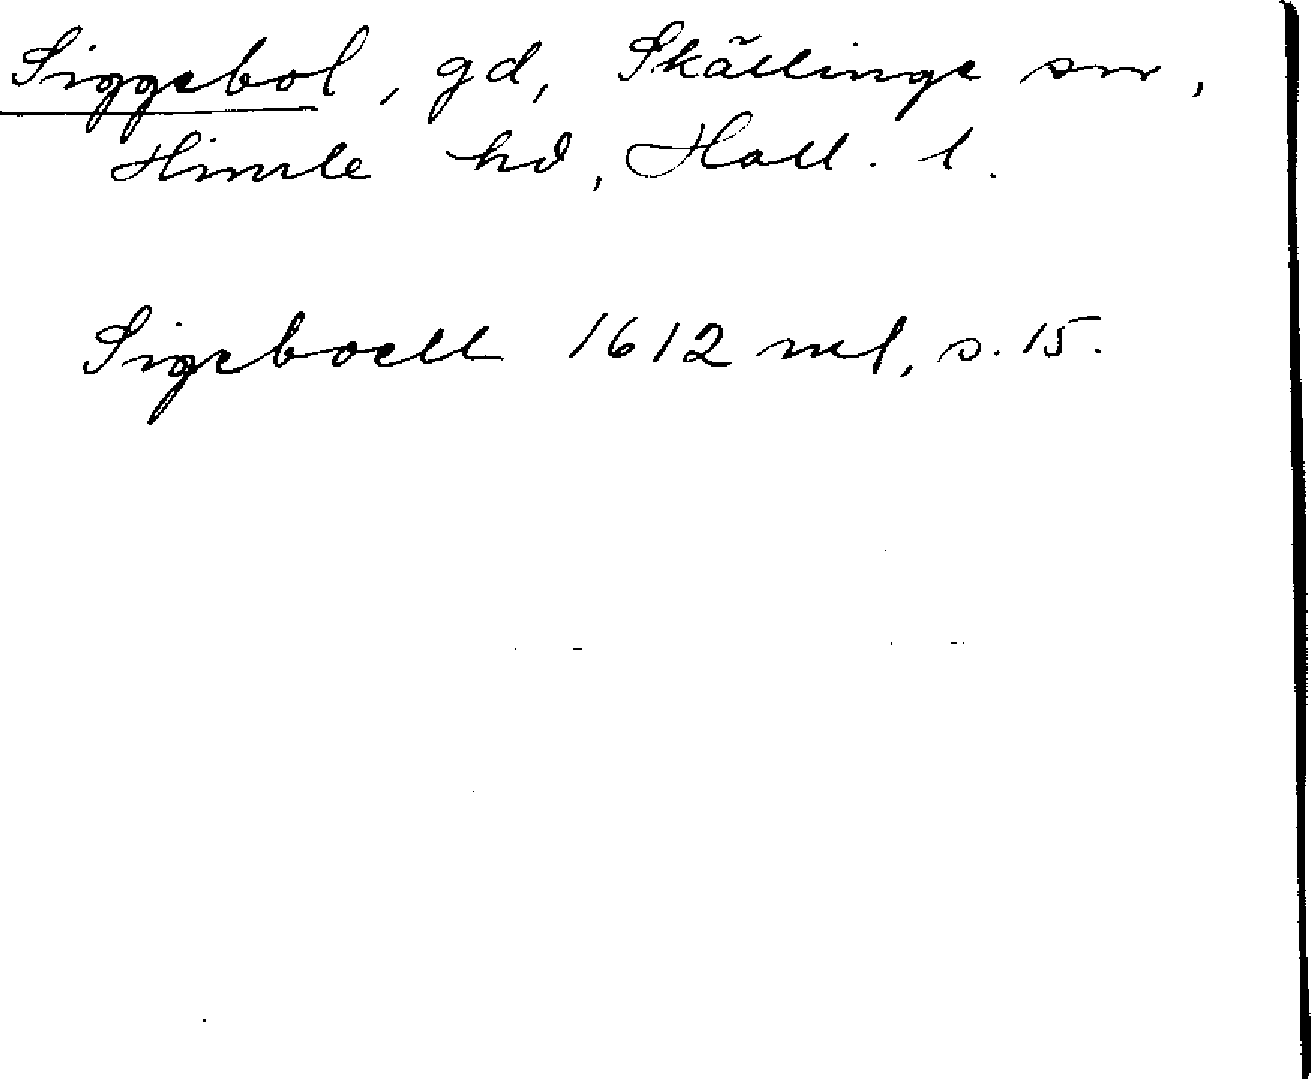 Siggebol, gd, Skällinge sn,
Himle hd, Hall. l.
Sigeboell 1612 ml, s. 15.